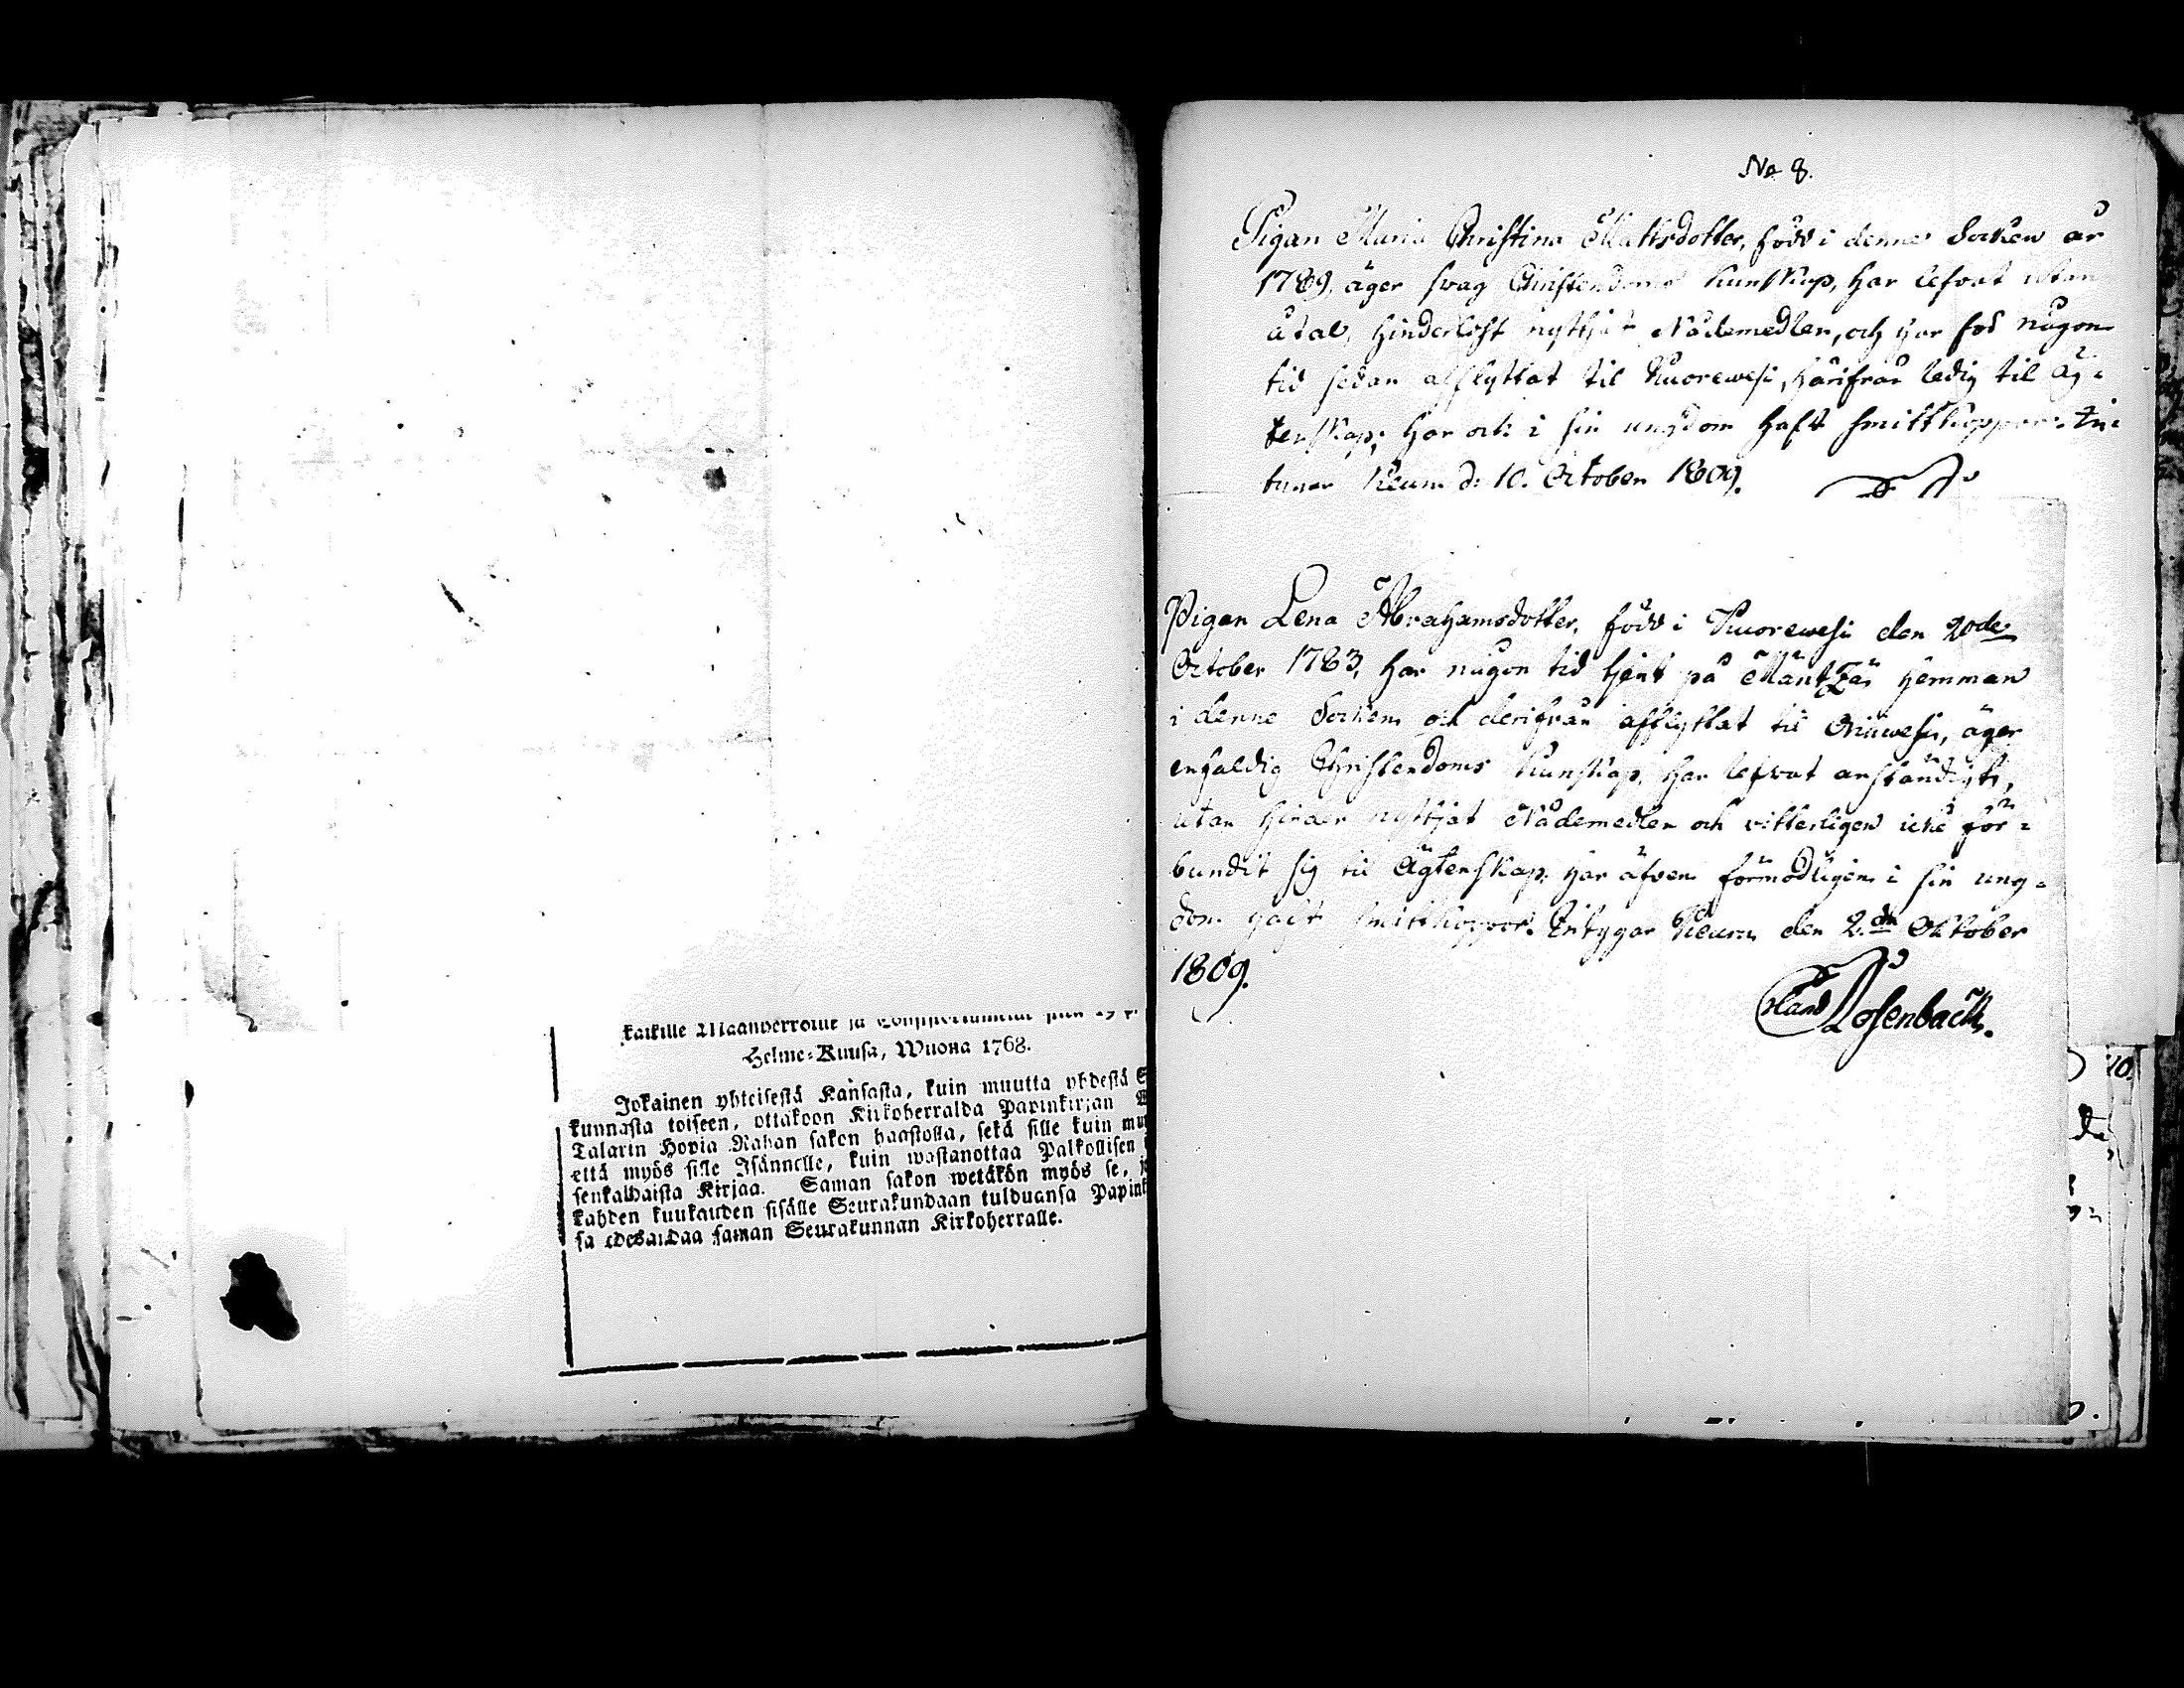 Helme-Kuusa, Wuona 1768.
Jokainen yhteisestä Kansasta, kuin muutta yhdestä S
kunnasta toiseen, ottakoon Kirkoherralda Papinkirjan
Talarin Hopia Rahan sakon haastolla, sekä sille kuin mu
että myös sille Isännelle, kuin wastanottaa Palkollisen
senkaldaista Kirjaa. Saman sakon wetäkön myös se,
kahden kuukauden sisälle Seurakundaan tulduansa Papink
sa edesandaa saman Seurakunnan Kirkoherralle.
No 8.
Pigan Maria Christina Mattsdotter, född i denne Socken år
1789, äger svag Christendoms kunskap, har lefvat utan
åtal, hinderlöst nyttjat Nådemedlen, och har för någon
tid sedan afflyttat til Kuorewesi, härifrån ledig til Äg-
tenskap; har ock i sin ungdom haft smittkoppor:
Keuru d: 10. October 1809.
Pigan Lena Abrahamsdotter, född i Kuorewesi den 20de
October 1783, har någon tid tjent på Mänttä hemman
i denne Socken och derifrån afflyttat til Oriwesi, äger
enfaldig Christendoms kunskap, har lefvat anständigt,
utan hinder nyttjat Nådemedlen och vitterligen icke för-
bundit sig til Ägtenskap: har äfven förmodligen i sin ung-
dom haft smittkoppor. Intygar Keuru den 2dn October
1809.
Rosenback.